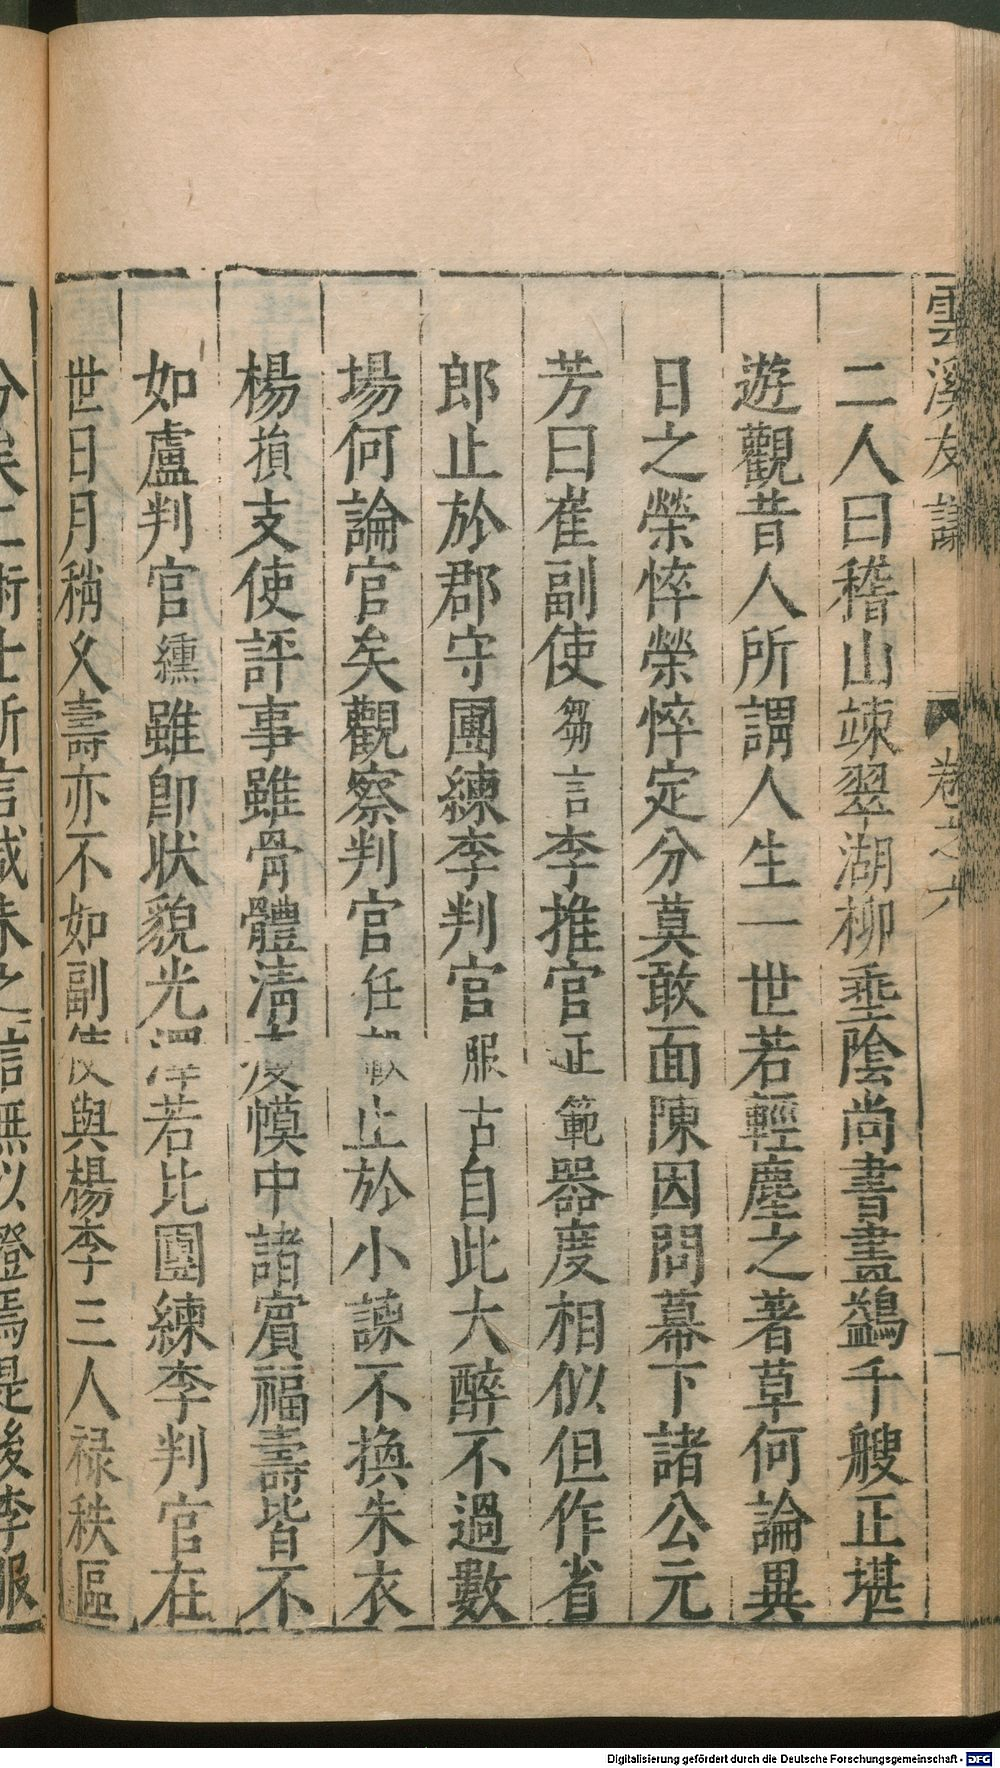 雲溪友議 卷之六 一
二人曰稽山竦翠湖柳埀陰尚書畫鷁千艘正堪
遊觀昔人所謂人生一世若輕塵之著草何論異
日之榮悴榮悴定分莫敢面陳因問幕下諸公元
芳曰崔副使芻言李推官正範器度相似但作省
郎止於郡守團練李判官服古自此大醉不過數
場何論官矣觀察判官任轂止於小諫不換朱衣
楊損支使評事雖骨體清瘦幙中諸賔福壽皆不
如盧判官纁雖即狀貌光澤若比團練李判官在
世日月稍久壽亦不如副使與楊李三人禄秩區
分矣二術士所言咸未之信無以證焉是後李服
Digitalisierung gefördert durch die Deutsche Forschungsgemeinschaft - DFG